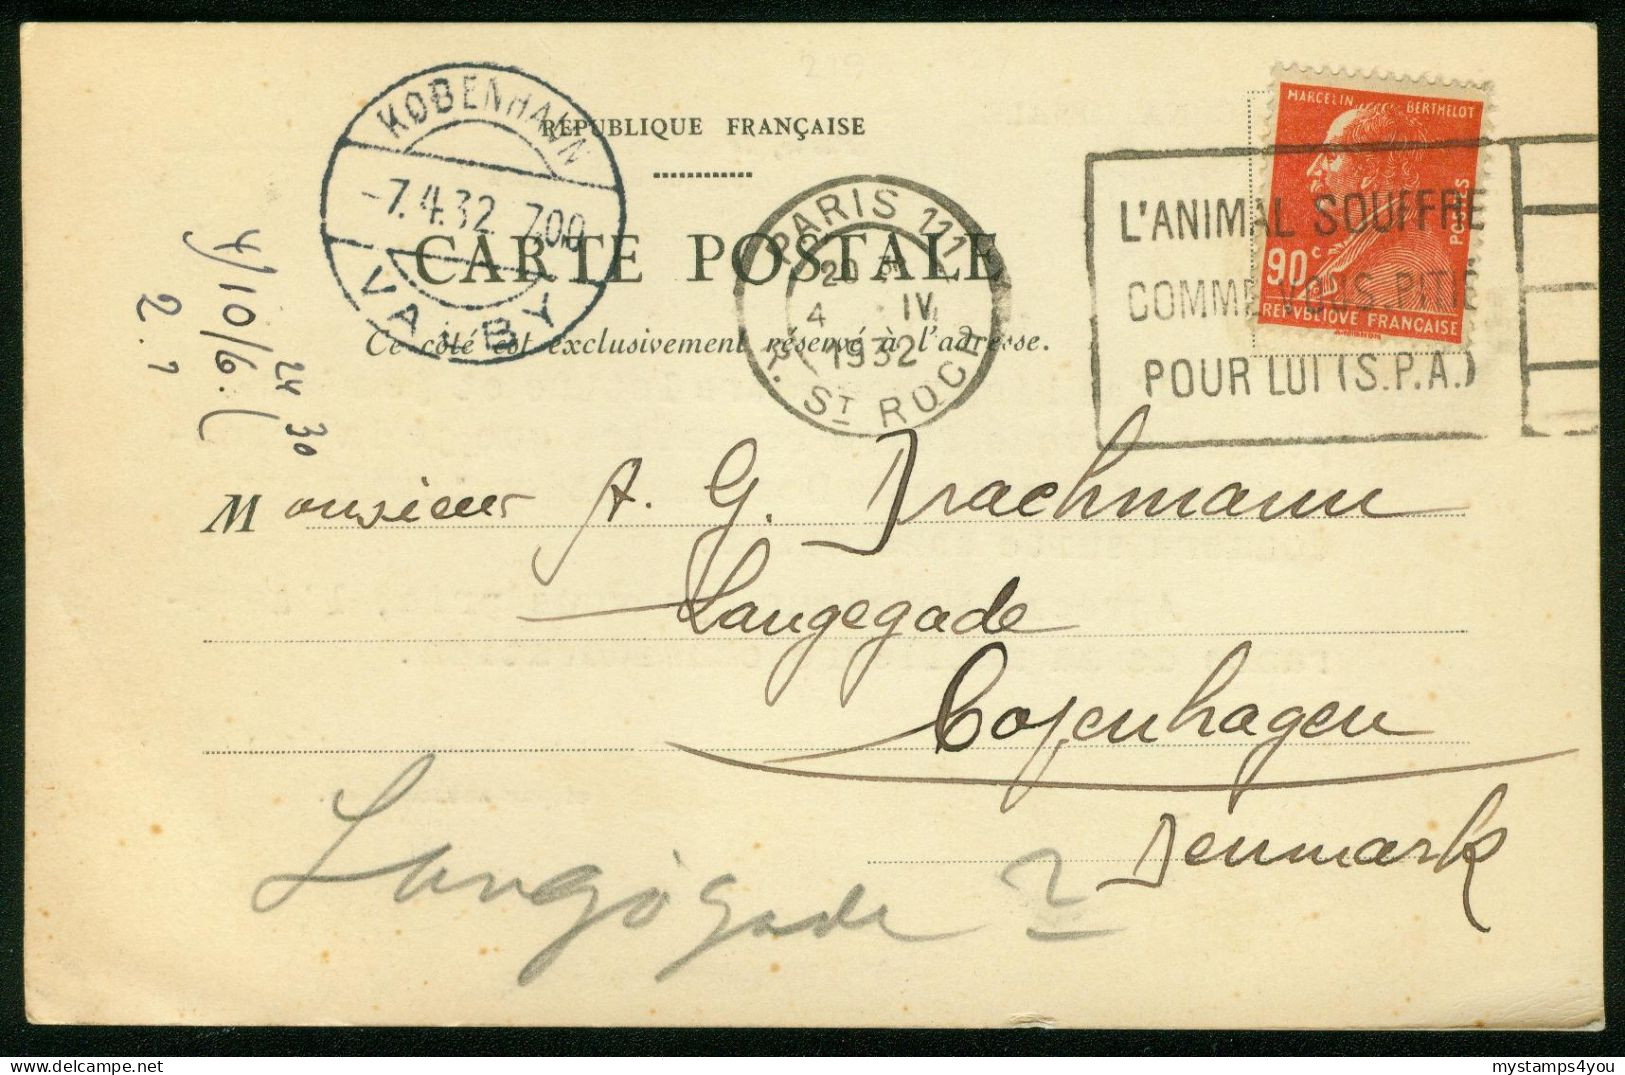 RÉPUBLIQUE FRANÇAISE
CARTE POSTALE
Ce côté est exclusivement réservé à l'adresse.
KØBENHAVN
-7.4.32. 7.00
VALBY
PARIS 111
20
4 IV
1932
R. ST ROCH
L'ANIMAL SOUFFRE
COMME VOUS PITIE
POUR LUI (S.P.A.)
MARCELIN BERTHELOT
POSTES
90c
REPVBLIQVE FRANÇAISE
4/10/6.
24 30
2.7
Monsieur A. G. Drachmann
Langegade
Copenhagen
Denmark
Langøgade 2
mystamps4you